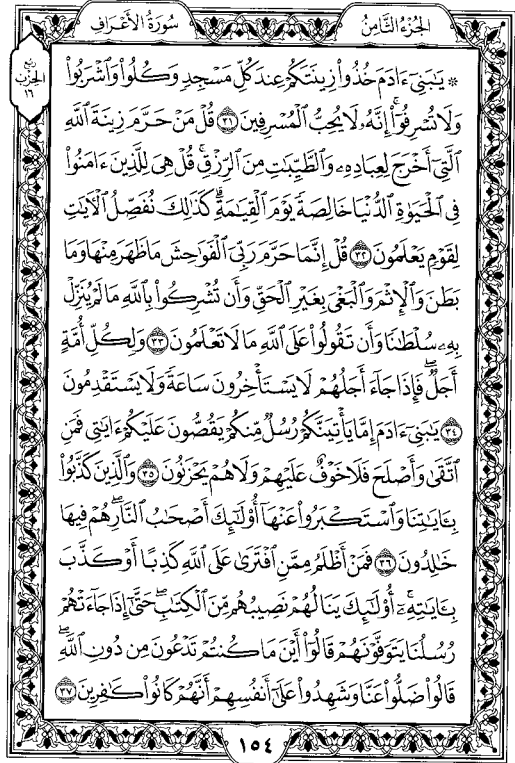 الجُزْءُ الثَّامِنُ
سُورَةُ الأَعْرَافِ
رُبْع الحِزْب ١٦
۞ يَٰبَنِيٓ ءَادَمَ خُذُواْ زِينَتَكُمۡ عِندَ كُلِّ مَسۡجِدٖ وَكُلُواْ وَٱشۡرَبُواْ
وَلَا تُسۡرِفُوٓاْۚ إِنَّهُۥ لَا يُحِبُّ ٱلۡمُسۡرِفِينَ ٣١ قُلۡ مَنۡ حَرَّمَ زِينَةَ ٱللَّهِ
ٱلَّتِيٓ أَخۡرَجَ لِعِبَادِهِۦ وَٱلطَّيِّبَٰتِ مِنَ ٱلرِّزۡقِۚ قُلۡ هِيَ لِلَّذِينَ ءَامَنُواْ
فِي ٱلۡحَيَوٰةِ ٱلدُّنۡيَا خَالِصَةٗ يَوۡمَ ٱلۡقِيَٰمَةِۗ كَذَٰلِكَ نُفَصِّلُ ٱلۡأٓيَٰتِ
لِقَوۡمٖ يَعۡلَمُونَ ٣٢ قُلۡ إِنَّمَا حَرَّمَ رَبِّيَ ٱلۡفَوَٰحِشَ مَا ظَهَرَ مِنۡهَا وَمَا
بَطَنَ وَٱلۡإِثۡمَ وَٱلۡبَغۡيَ بِغَيۡرِ ٱلۡحَقِّ وَأَن تُشۡرِكُواْ بِٱللَّهِ مَا لَمۡ يُنَزِّلۡ
بِهِۦ سُلۡطَٰنٗا وَأَن تَقُولُواْ عَلَى ٱللَّهِ مَا لَا تَعۡلَمُونَ ٣٣ وَلِكُلِّ أُمَّةٍ
أَجَلٞۖ فَإِذَا جَآءَ أَجَلُهُمۡ لَا يَسۡتَأۡخِرُونَ سَاعَةٗ وَلَا يَسۡتَقۡدِمُونَ
٣٤ يَٰبَنِيٓ ءَادَمَ إِمَّا يَأۡتِيَنَّكُمۡ رُسُلٞ مِّنكُمۡ يَقُصُّونَ عَلَيۡكُمۡ ءَايَٰتِي فَمَنِ
ٱتَّقَىٰ وَأَصۡلَحَ فَلَا خَوۡفٌ عَلَيۡهِمۡ وَلَا هُمۡ يَحۡزَنُونَ ٣٥ وَٱلَّذِينَ كَذَّبُواْ
بِـَٔايَٰتِنَا وَٱسۡتَكۡبَرُواْ عَنۡهَآ أُوْلَٰٓئِكَ أَصۡحَٰبُ ٱلنَّارِۖ هُمۡ فِيهَا
خَٰلِدُونَ ٣٦ فَمَنۡ أَظۡلَمُ مِمَّنِ ٱفۡتَرَىٰ عَلَى ٱللَّهِ كَذِبًا أَوۡ كَذَّبَ
بِـَٔايَٰتِهِۦٓۚ أُوْلَٰٓئِكَ يَنَالُهُمۡ نَصِيبُهُم مِّنَ ٱلۡكِتَٰبِۖ حَتَّىٰٓ إِذَا جَآءَتۡهُمۡ
رُسُلُنَا يَتَوَفَّوۡنَهُمۡ قَالُوٓاْ أَيۡنَ مَا كُنتُمۡ تَدۡعُونَ مِن دُونِ ٱللَّهِۖ
قَالُواْ ضَلُّواْ عَنَّا وَشَهِدُواْ عَلَىٰٓ أَنفُسِهِمۡ أَنَّهُمۡ كَانُواْ كَٰفِرِينَ ٣٧
١٥٤